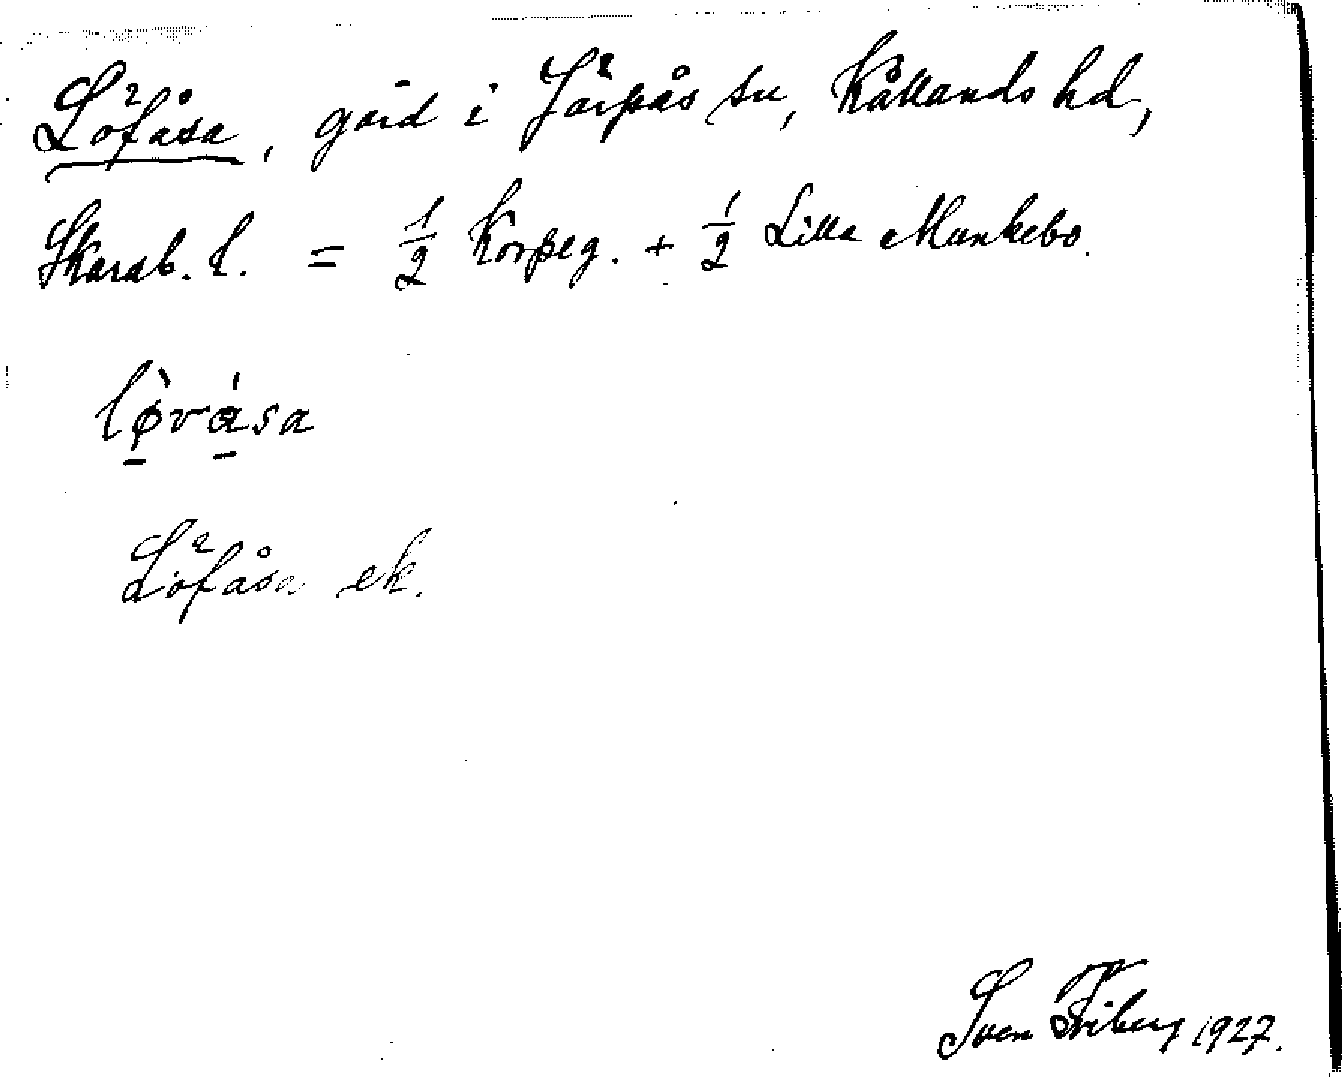 Löfåsa, gård i Järpås sn, Kållands hd,
Skarab. l. = 1/2 Korpeg. + 1/2 Lilla Munkebo.
lø̀vása
Löfåsa ek.
Sven Friberg 1927.